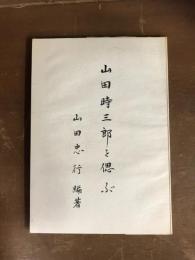 山田時三郎を偲ぶ
山田忠行 編著